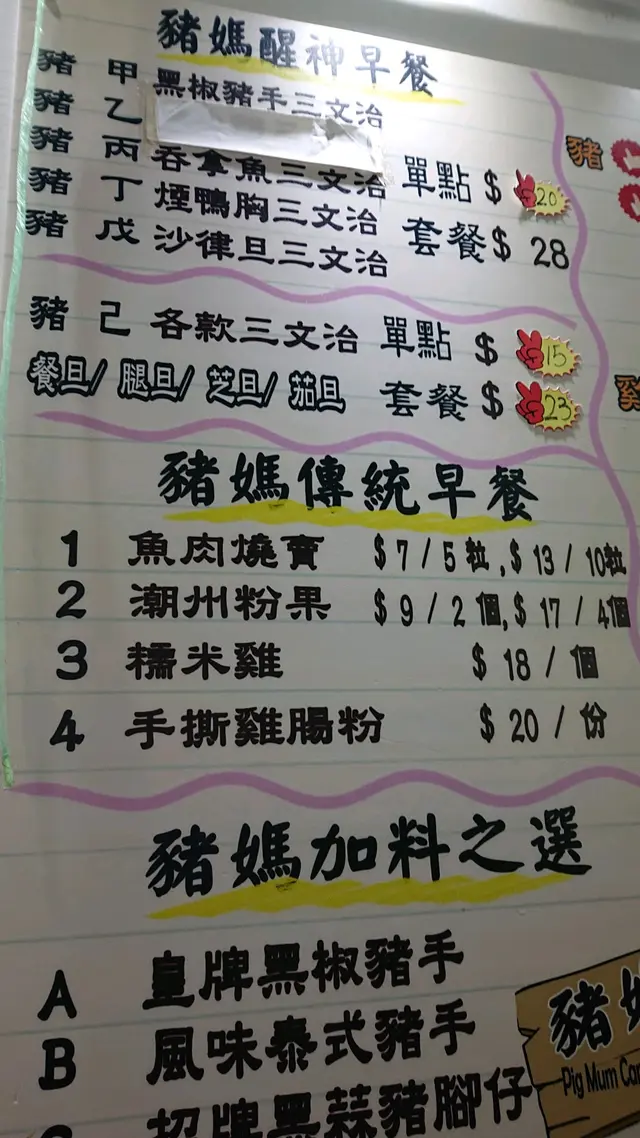 豬媽醒神早餐
豬 甲 黑椒豬手三文治
豬 乙
豬 丙 吞拿魚三文治 單點 $ 20
豬 丁 煙鴨胸三文治
豬 戊 沙律旦三文治 套餐 $ 28
豬 己 各款三文治 單點 $ 15
餐旦/ 腿旦/ 芝旦/ 茄旦 套餐 $ 23
豬媽傳統早餐
1 魚肉燒賣 $7/5粒,$13/10粒
2 潮州粉果 $9/2個,$17/4個
3 糯米雞 $18/個
4 手撕雞腸粉 $20/份
豬媽加料之選
A 皇牌黑椒豬手
B 風味泰式豬手
招牌黑蒜豬腳仔
豬
豬
Pig Mum